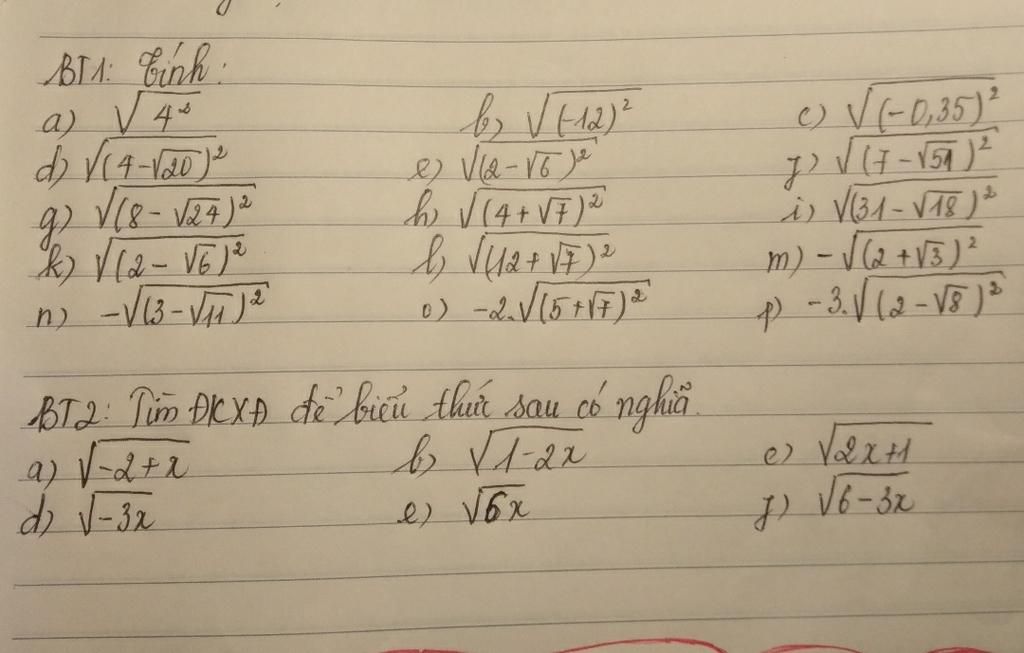 BT1: Tính:
a) √4² b) √(-12)² c) √(-0,35)²
d) √(4-√20)² e) √(2-√6)² f) √(7-√51)²
g) √(8-√24)² h) √(4+√7)² i) √(31-√18)²
k) √(2-√6)² l) √(12+√7)² m) -√(2+√3)²
n) -√(3-√11)² o) -2.√(5+√7)² p) -3.√(2-√8)²
BT2: Tìm ĐKXĐ để biểu thức sau có nghĩã.
a) √-2+x b) √1-2x c) √2x+1
d) √-3x e) √6x f) √6-3x